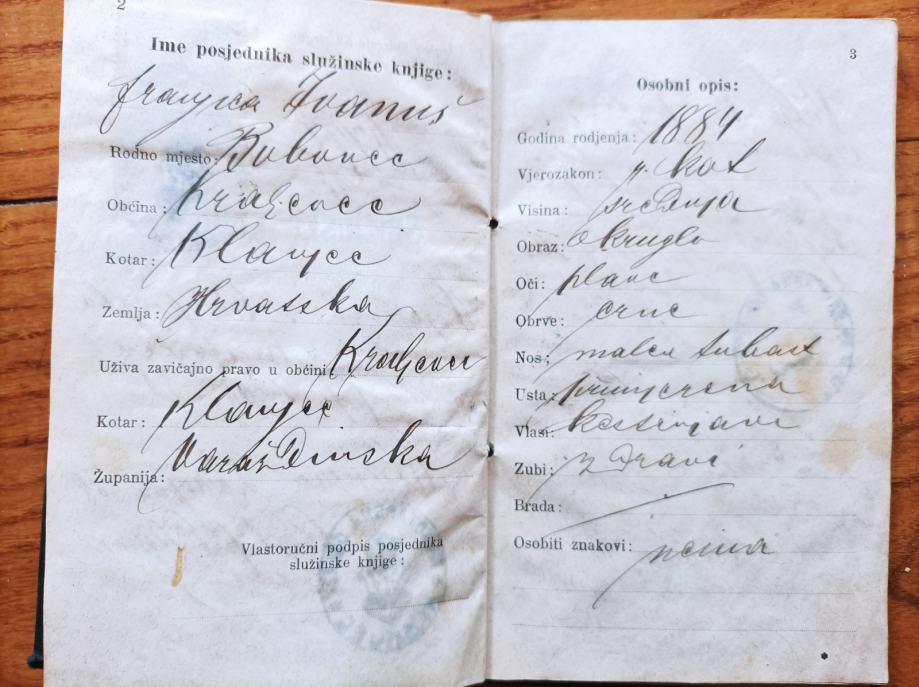 2
Ime posjednika služinske knjige:
Franjica Ivanuš
Rodno mjesto: Bobovec
Občina: Kraljevec
Kotar: Klanjec
Zemlja: Hrvatska
Uživa zavičajno pravo u občini Kraljevec
Kotar: Klanjec
Županija: Varaždinska
Vlastoručni podpis posjednika
služinske knjige:
3
Osobni opis:
Godina rodjenja: 1884
Vjerozakon: r. kat
Visina: srednja
Obraz: okruglo
Oči: plave
Obrve: crne
Nos: malco tubast
Usta: primjerena
Vlasi: kestenjavi
Zubi: zdravi
Brada:
Osobiti znakovi: nema